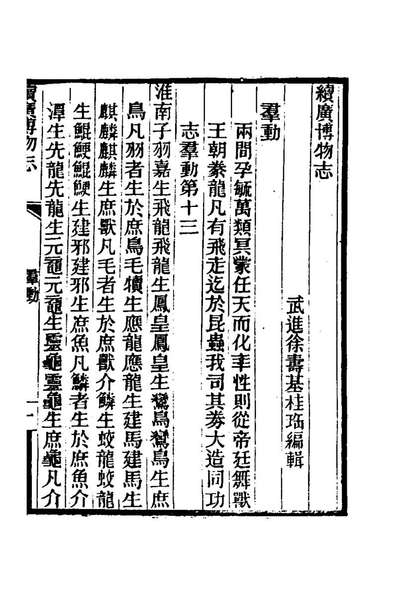 續廣博物志
武進徐壽基桂珤編輯
羣動
兩間孕毓萬類冥蒙任天而化率性則從帝廷舞獸
王朝豢龍凡有飛走迄於昆蟲我司其券大造同功
志羣動第十三
淮南子羽嘉生飛龍飛龍生鳳皇鳳皇生鸞鳥鸞鳥生庶
鳥凡羽者生於庶鳥毛犢生應龍應龍生建馬建馬生
麒麟麒麟生庶獸凡毛者生於庶獸介鱗生蛟龍蛟龍
生鯤鯁鯤鯁生建邪建邪生庶魚凡鱗者生於庶魚介
潭生先龍先龍生元黿元黿生靈龜靈龜生庶龜凡介
續廣博物志
羣動
一